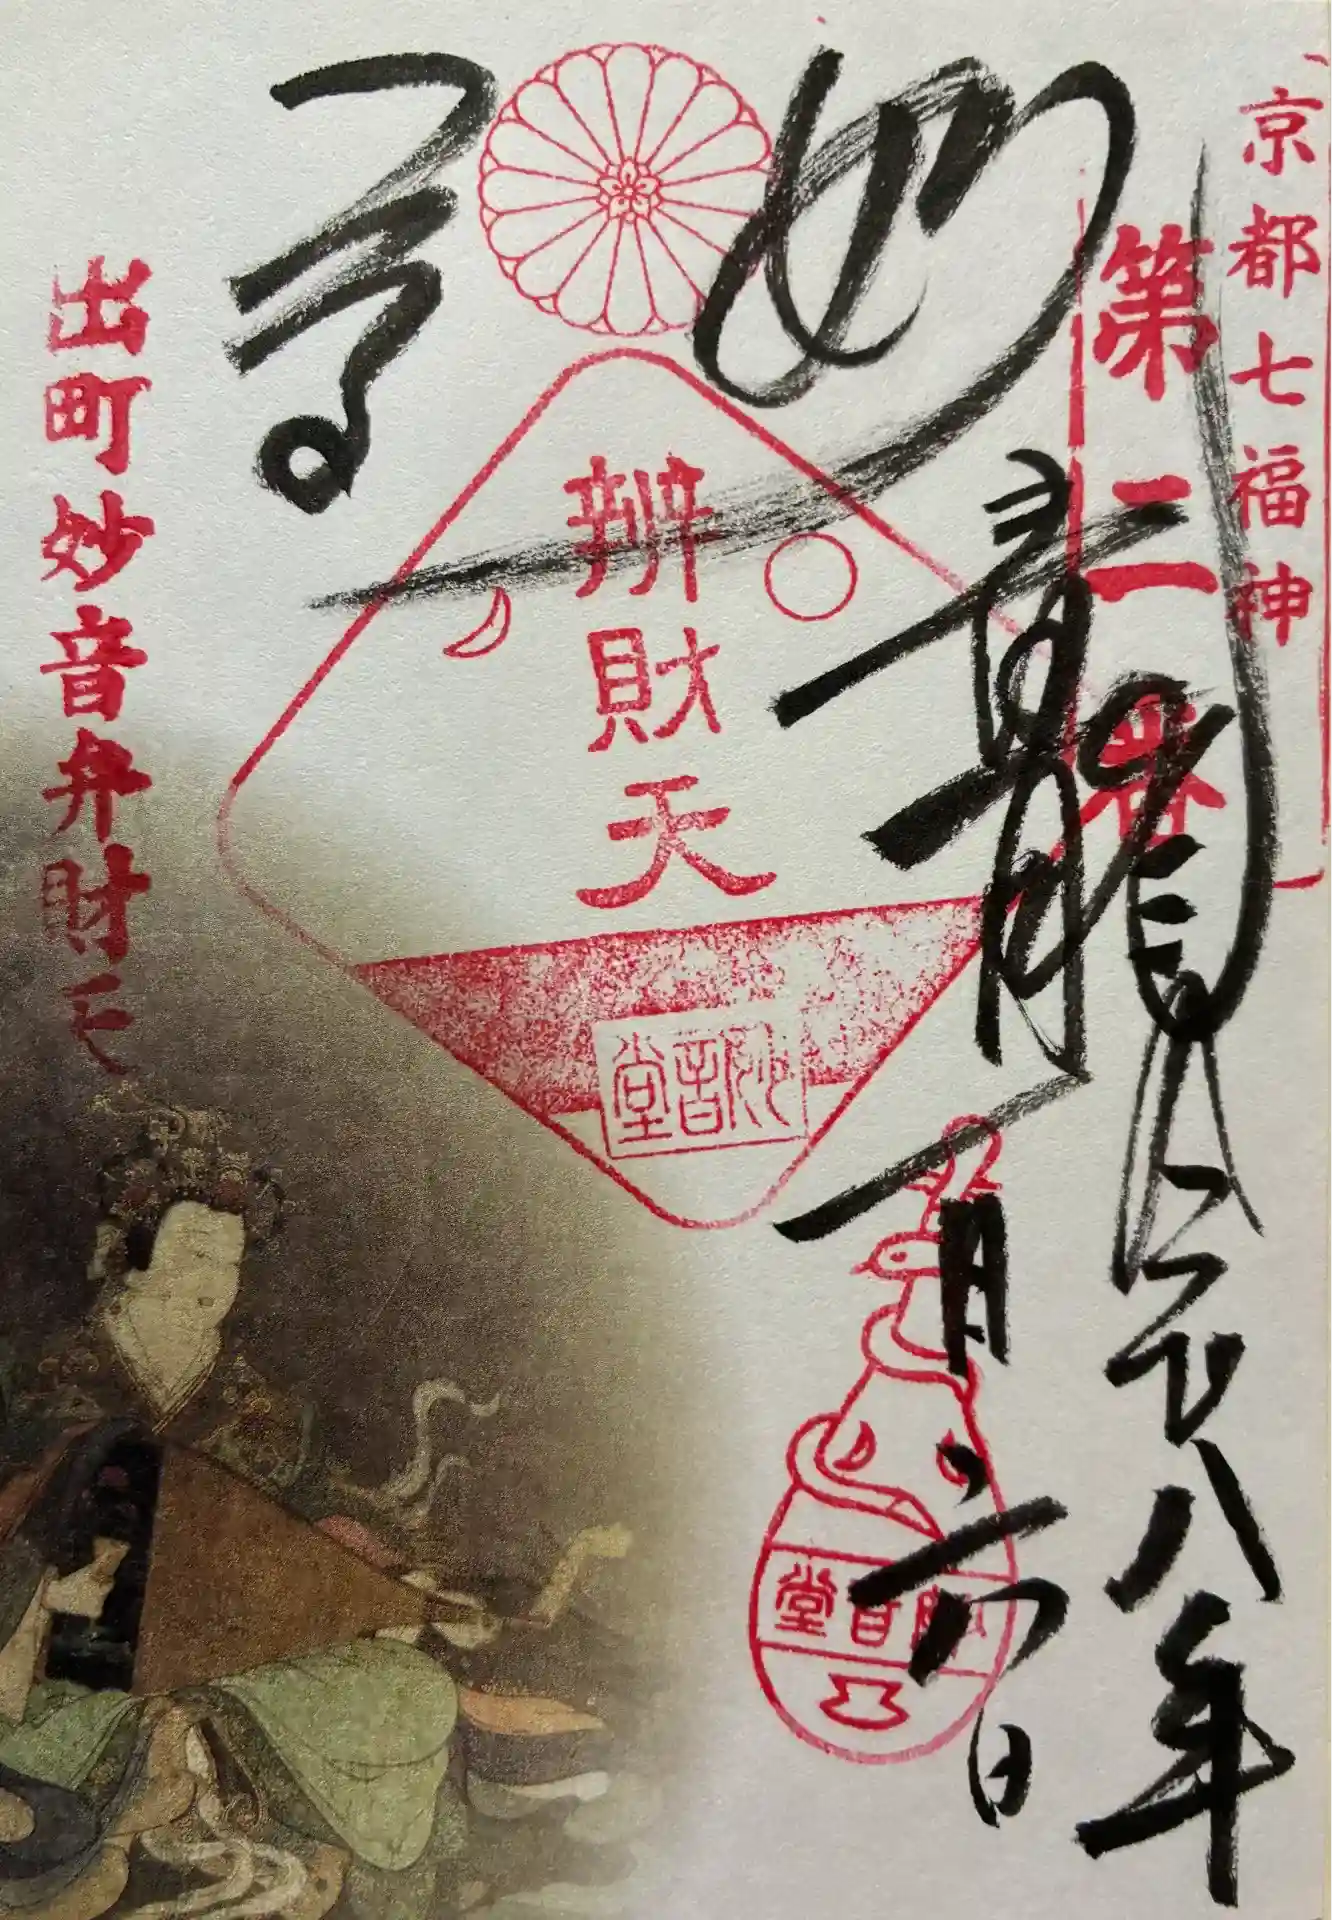 京都七福神
第二番
令和八年
青龍
一月六日
妙音
辨財天
妙音堂
妙音堂
出町妙音弁財天